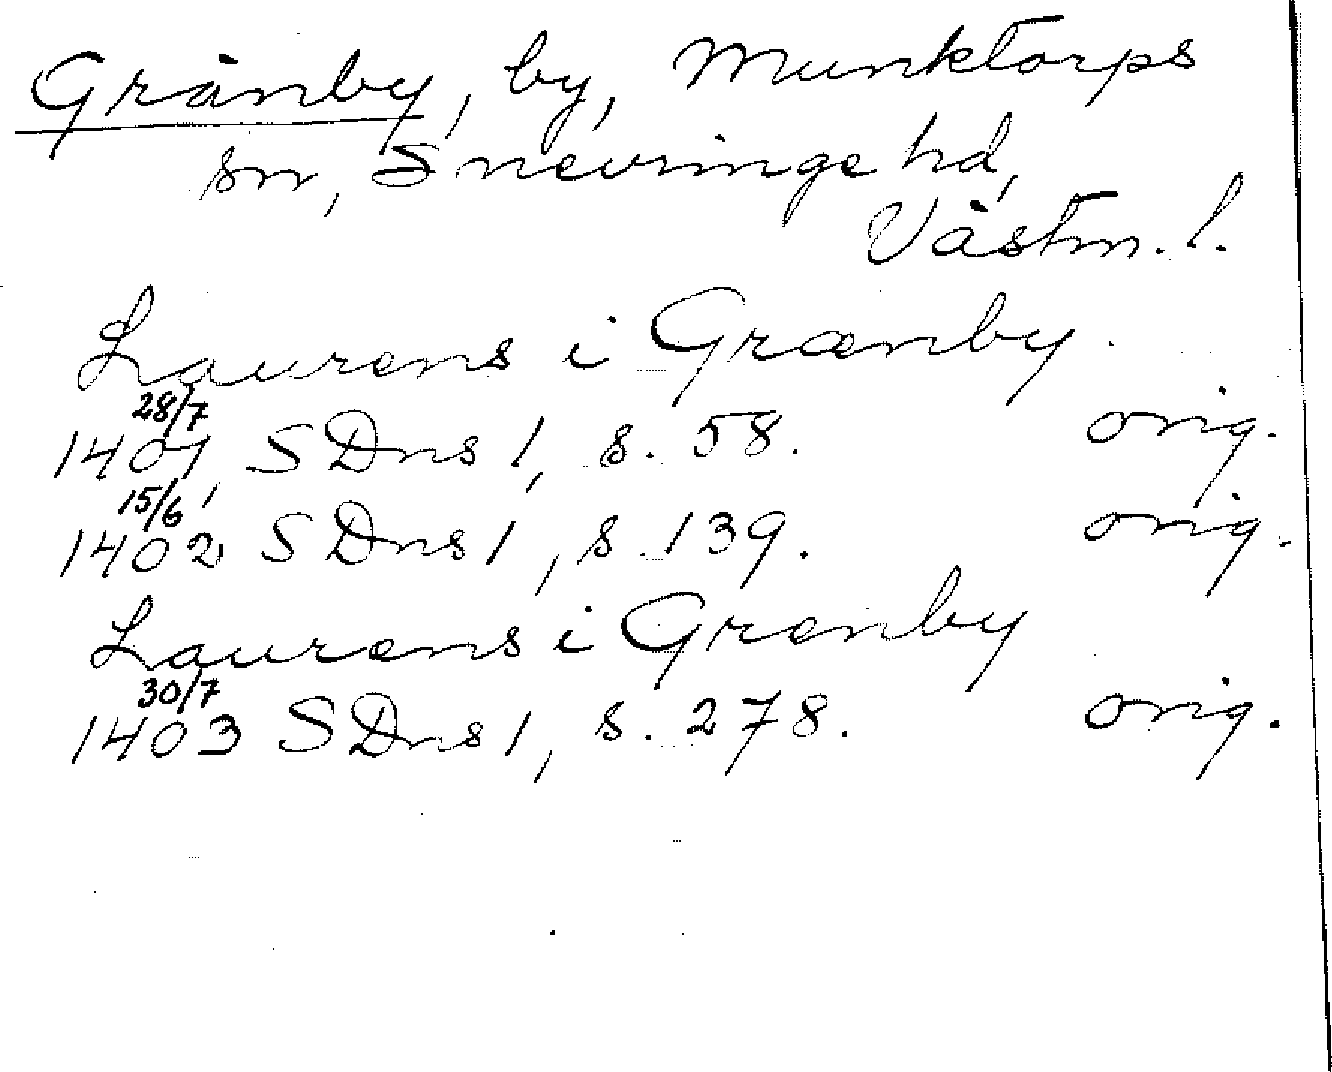 Gränby, by, Munktorps
sn, Snevringe hd,
Västm. l.
Laurens i Grænby.
28/7
1401, SDns 1, s. 58. orig.
15/6
1402 SDns 1, s. 139. orig.
Laurens i Grenby
30/7
1403 SDns 1, s. 278. orig.